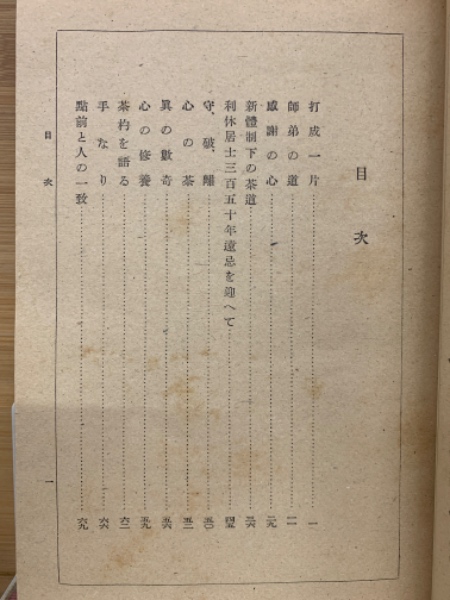 目次
打成一片……一
師弟の道……一一
感謝の心……二九
新體制下の茶道……三六
利休居士三百五十年遠忌を迎へて……四五
守、破、離……五〇
心の茶……五三
眞の數奇……五六
心の修養……五九
茶杓を語る……六二
手なり……六六
點前と人の一致……六九
目次
一